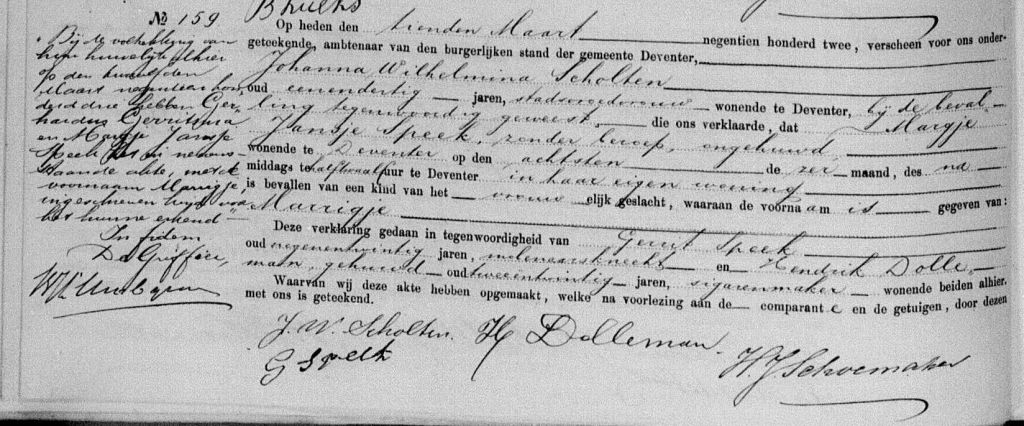 Bruens
№ 159
Op heden den tienden Maart negentien honderd twee, verscheen voor ons onder-
geteekende, ambtenaar van den burgerlijken stand der gemeente Deventer,
Johanna Wilhelmina Scholten
oud eenendertig jaren, stadsvroedvrouw wonende te Deventer, bij de beval-
ling tegenwoordig geweest, die ons verklaarde, dat Margje
Jansje Speek, zonder beroep, ongehuwd,
wonende te Deventer op den achtsten dezer maand, des na
middags te half twaalf uur te Deventer in haar eigen woning
is bevallen van een kind van het vrouwelijk geslacht, waaraan de voornaam is gegeven van:
Marrigje
Deze verklaring gedaan in tegenwoordigheid van Gerrit Speek
oud negenentwintig jaren, molenaarsknecht en Hendrik Dolle-
man, gehuwd, oud tweeentwintig jaren, sigarenmaker wonende beiden alhier.
Waarvan wij deze akte hebben opgemaakt, welke na voorlezing aan de comparante en de getuigen, door dezen
met ons is geteekend.
J. W. Scholten. H Dolleman.
G Speek
H. J. Schoemaker
Bij de voltrekking van
hun huwelijk alhier
op den twaalfden
Maart negentien hon-
derd drie hebben Ger-
hardus Gerritsma
en Margje Jansje
Speek het in neven-
staande akte, met de
voornaam Marrigje,
ingeschreven kind voor
het hunne erkend"
In fidem
De Griffier,